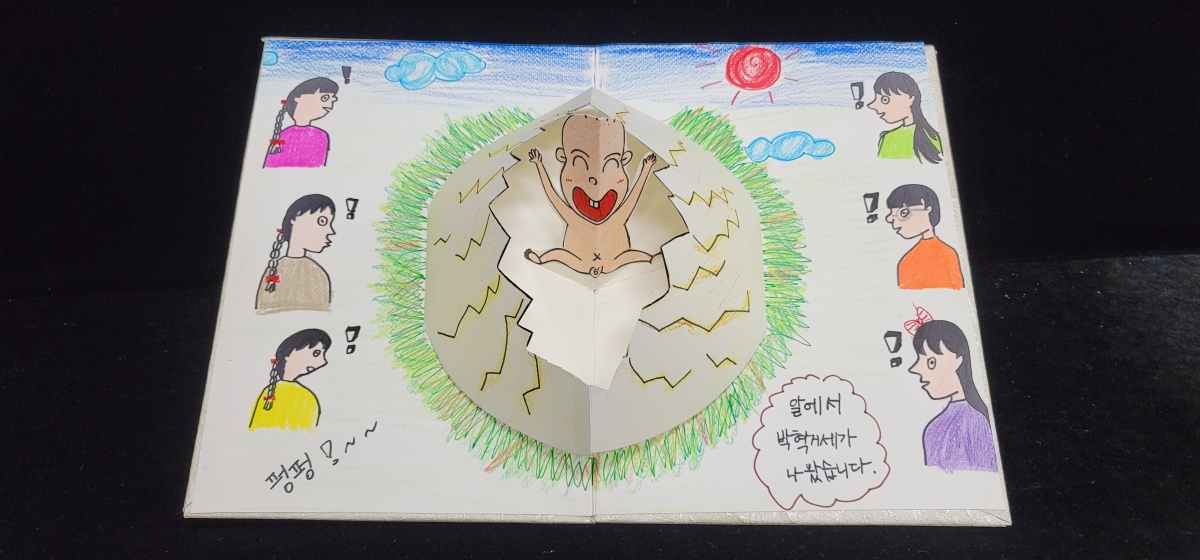 펑펑 !~~
알에서
박혁거세가
나왔습니다.